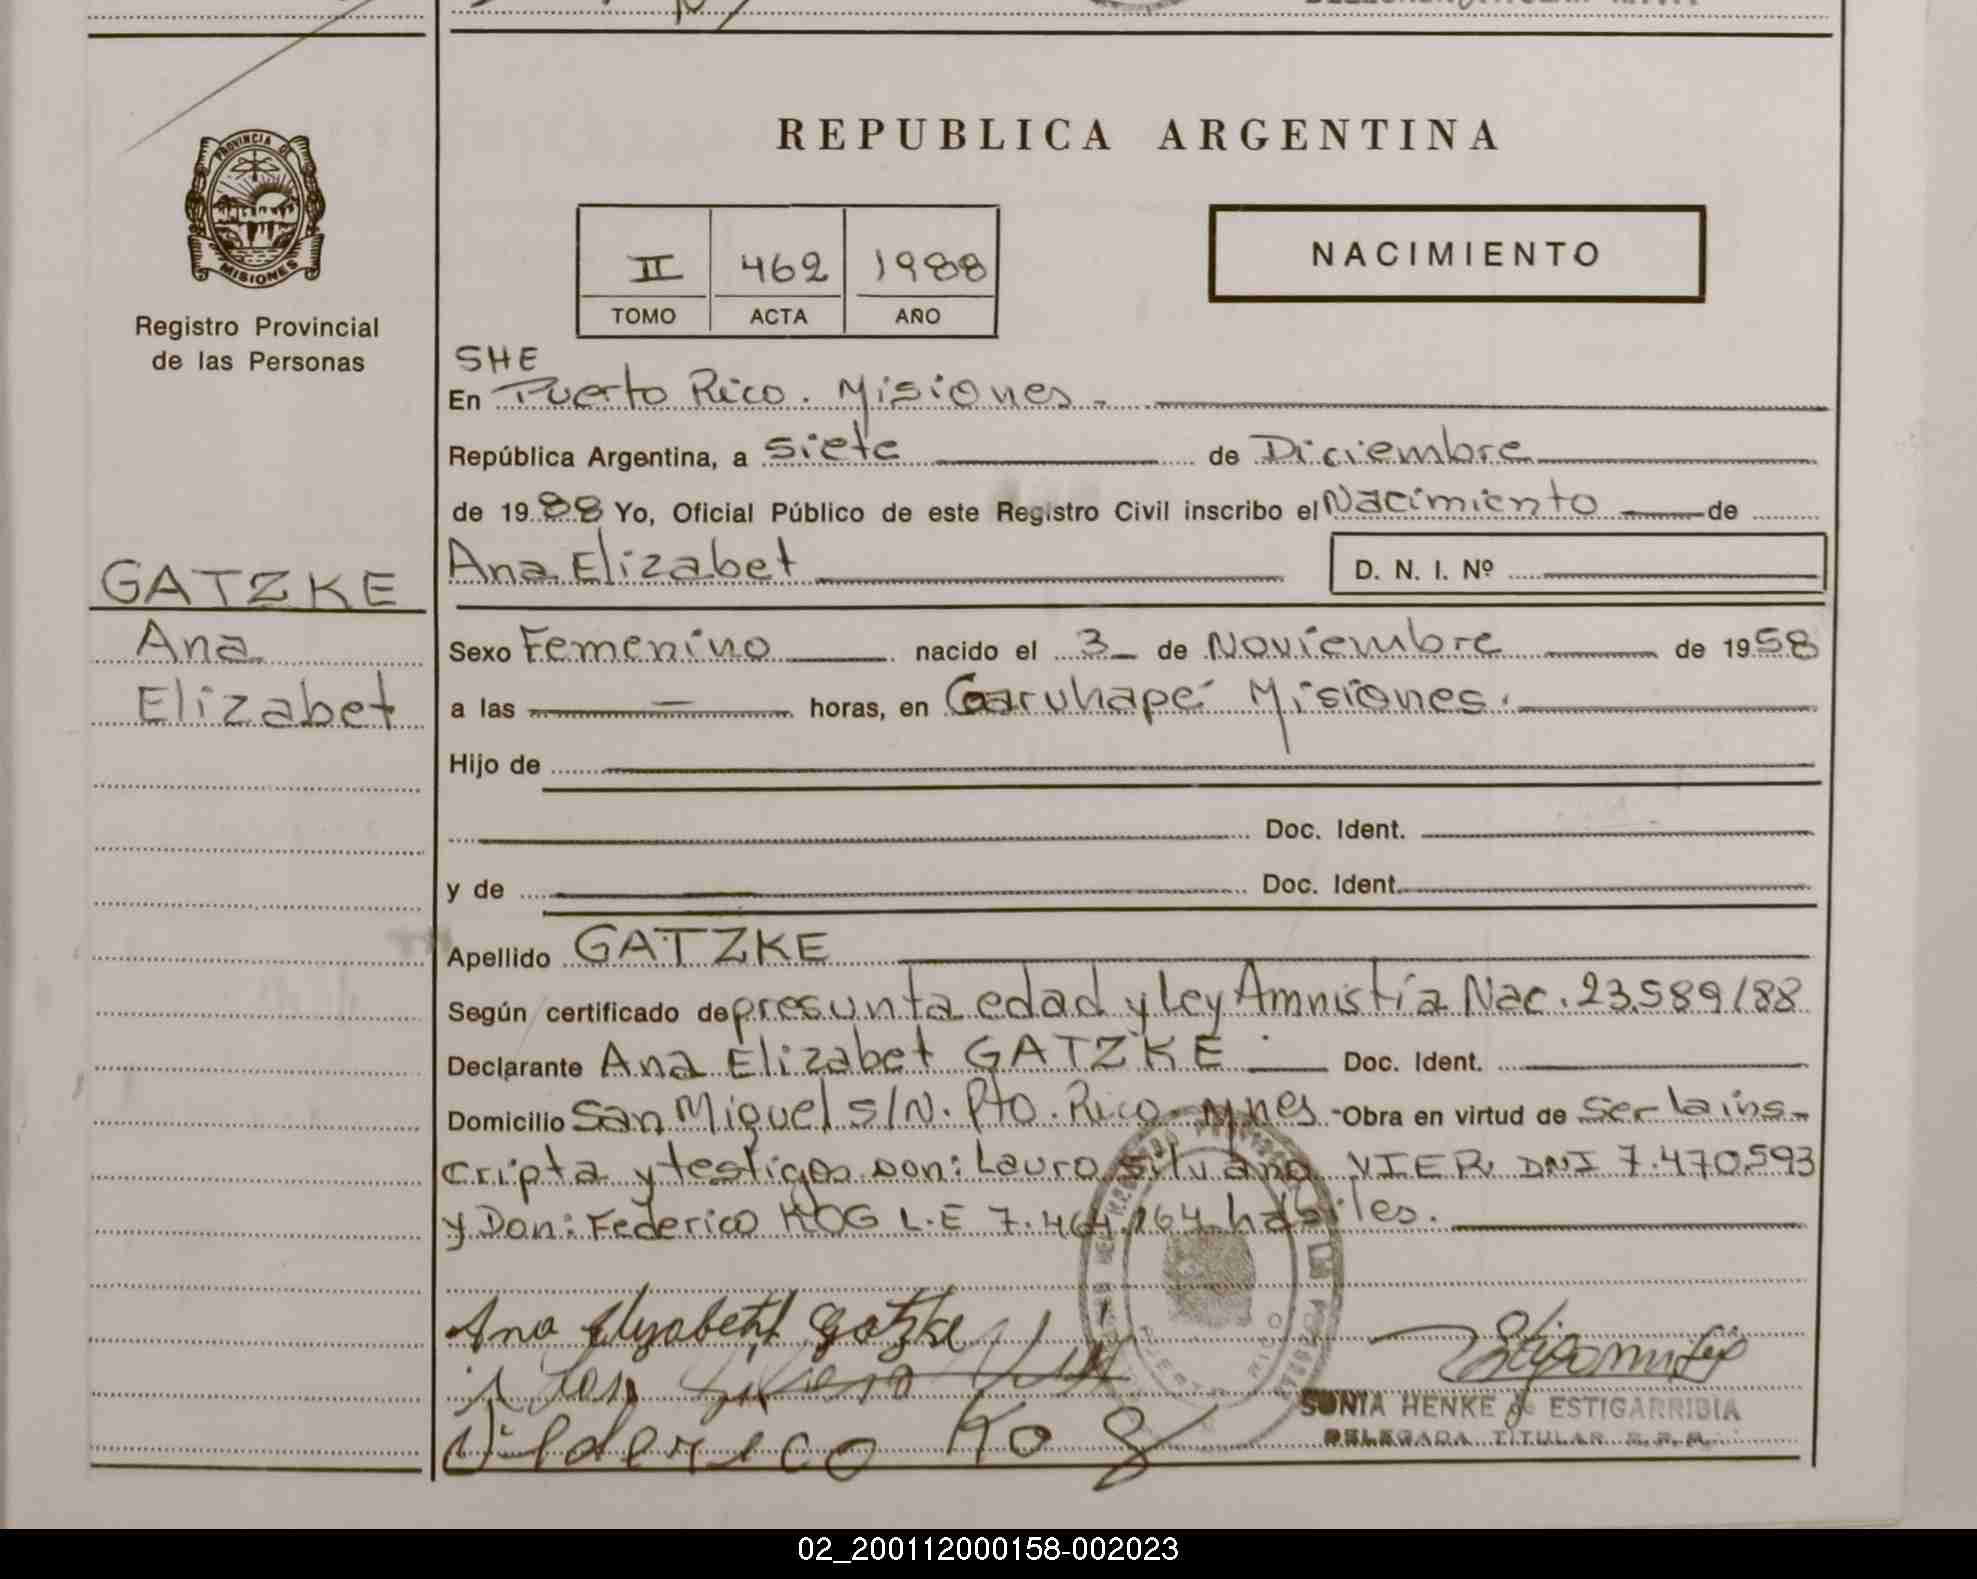 REPUBLICA ARGENTINA
PROVINCIA DE
MISIONES
Registro Provincial
de las Personas
II 462 1988
TOMO ACTA AÑO
NACIMIENTO
SHE
En Puerto Rico. Misiones.
República Argentina, a siete de Diciembre
de 1988 Yo, Oficial Público de este Registro Civil inscribo el Nacimiento de
Ana Elizabet
D. N. I. Nº
GATZKE
Ana
Elizabet
Sexo Femenino nacido el 3 de Noviembre de 1958
a las — horas, en Garuhapé Misiones.
Hijo de
Doc. Ident.
y de Doc. Ident.
Apellido GATZKE
Según certificado de presunta edad y Ley Amnistía Nac. 23.589/88
Declarante Ana Elizabet GATZKE Doc. Ident.
Domicilio San Miguel S/N. Pto. Rico. Mnes - Obra en virtud de ser la ins-
cripta y testigos don: Lauro Silvano VIER DNI 7.470.593
y Don: Federico KOG L.E 7.464.164 habiles.
Ana Elyzabeth Gatzke
Federico Kog
SUNIA HENKE de ESTIGARRIBIA
DELEGADA TITULAR R.P.P.
02_200112000158-002023